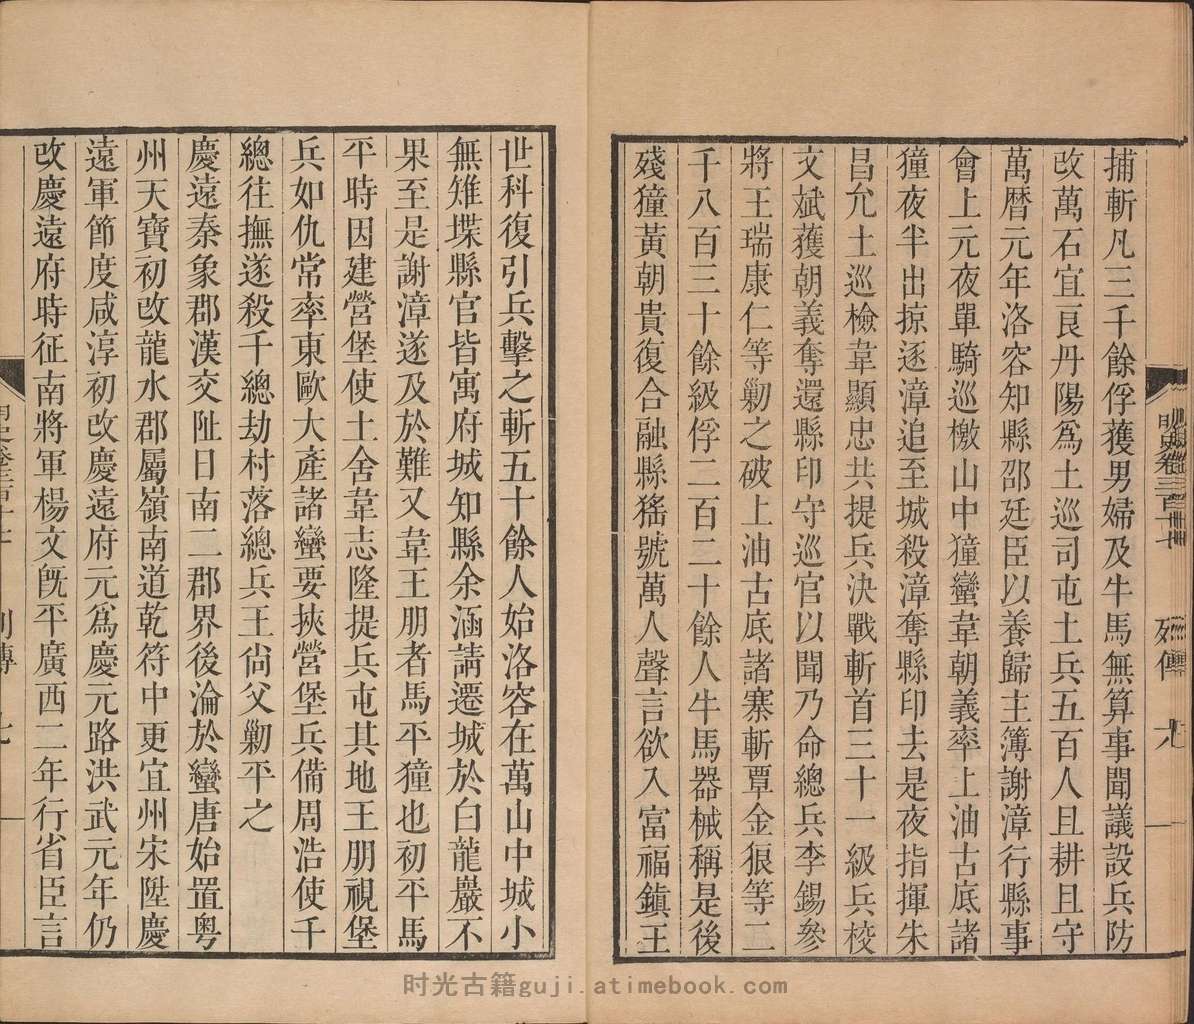 捕斬凡三千餘俘獲男婦及牛馬無算事聞議設兵防
改萬石宜良丹陽爲土巡司屯土兵五百人且耕且守
萬曆元年洛容知縣邵廷臣以養歸主簿謝漳行縣事
會上元夜單騎巡檄山中獞蠻韋朝義率上油古底諸
獞夜半出掠逐漳追至城殺漳奪縣印去是夜指揮朱
昌允土巡檢韋顯忠共提兵決戰斬首三十一級兵校
文斌獲朝義奪還縣印守巡官以聞乃命總兵李錫參
將王瑞康仁等勦之破上油古底諸寨斬覃金狼等二
千八百三十餘級俘二百二十餘人牛馬器械稱是後
殘獞黃朝貴復合融縣猺號萬人聲言欲入富福鎮王
世科復引兵擊之斬五十餘人始洛容在萬山中城小
無雉堞縣官皆寓府城知縣余涵請遷城於白龍巖不
果至是謝漳遂及於難又韋王朋者馬平獞也初平馬
平時因建營堡使土舍韋志隆提兵屯其地王朋視堡
兵如仇常率東歐大產諸蠻要挾營堡兵備周浩使千
總往撫遂殺千總劫村落總兵王尙父勦平之
慶遠秦象郡漢交阯日南二郡界後淪於蠻唐始置粵
州天寶初改龍水郡屬嶺南道乾符中更宜州宋陞慶
遠軍節度咸淳初改慶遠府元爲慶元路洪武元年仍
改慶遠府時征南將軍楊文旣平廣西二年行省臣言
时光古籍guji.atimebook.com